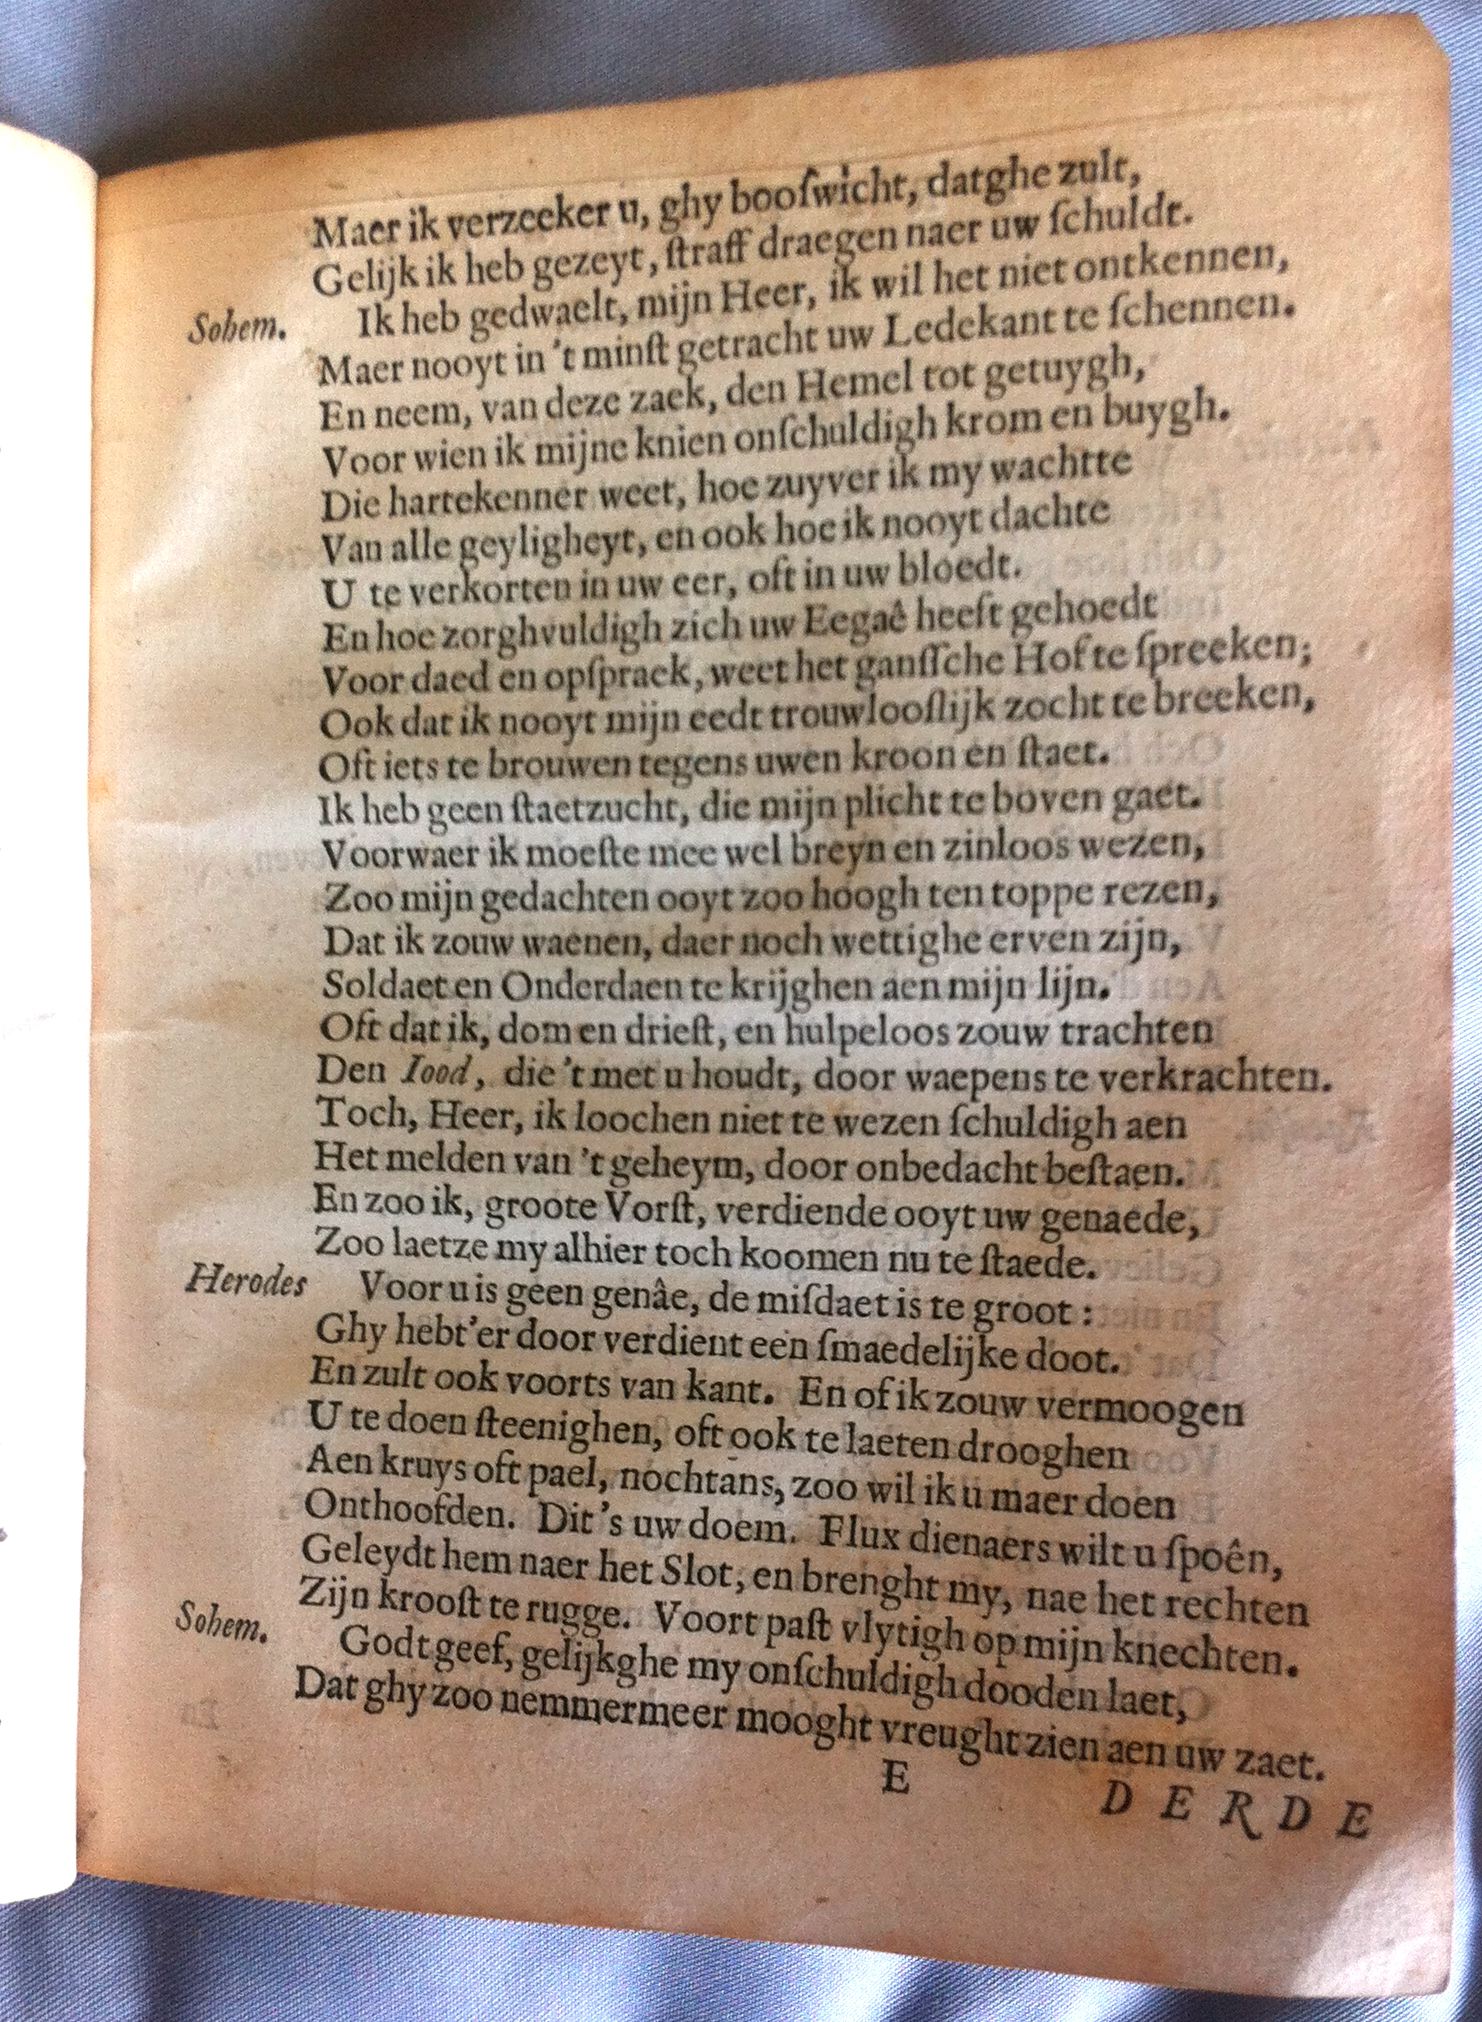 Maer ik verzeeker u, ghy booſwicht, datghe zult,
Gelijk ik heb gezeyt, ſtraff draegen naer uw ſchuldt.
Sohem. Ik heb gedwaelt, mijn Heer, ik wil het niet ontkennen,
Maer nooyt in 't minſt getracht uw Ledekant te ſchennen.
En neem, van deze zaek, den Hemel tot getuygh,
Voor wien ik mijne knien onſchuldigh krom en buygh.
Die hartekenner weet, hoe zuyver ik my wachtte
Van alle geyligheyt, en ook hoe ik nooyt dachte
U te verkorten in uw eer, oft in uw bloedt.
En hoe zorghvuldigh zich uw Eegaê heeft gehoedt
Voor daed en opſpraek, weet het ganſſche Hof te ſpreeken;
Ook dat ik nooyt mijn eedt trouwlooſlijk zocht te breeken,
Oft iets te brouwen tegens uwen kroon en ſtaet.
Ik heb geen ſtaetzucht, die mijn plicht te boven gaet.
Voorwaer ik moeſte mee wel breyn en zinloos wezen,
Zoo mijn gedachten ooyt zoo hoogh ten toppe rezen,
Dat ik zouw waenen, daer noch wettighe erven zijn,
Soldaet en Onderdaen te krijghen aen mijn lijn.
Oft dat ik, dom en drieſt, en hulpeloos zouw trachten
Den Iood, die 't met u houdt, door waepens te verkrachten.
Toch, Heer, ik loochen niet te wezen ſchuldigh aen
Het melden van 't geheym, door onbedacht beſtaen.
En zoo ik, groote Vorſt, verdiende ooyt uw genaede,
Zoo laetze my alhier toch koomen nu te ſtaede.
Herodes Voor u is geen genâe, de miſdaet is te groot:
Ghy hebt'er door verdient een ſmaedelijke doot.
En zult ook voorts van kant. En of ik zouw vermoogen
U te doen ſteenighen, oft ook te laeten drooghen
Aen kruys oft pael, nochtans, zoo wil ik u maer doen
Onthoofden. Dit 's uw doem. Flux dienaers wilt u ſpoên,
Geleydt hem naer het Slot, en brenght my, nae het rechten
Zijn krooſt te rugge. Voort paſt vlytigh op mijn knechten.
Sohem. Godt geef, gelijkghe my onſchuldigh dooden laet,
Dat ghy zoo nemmermeer mooght vreught zien aen uw zaet.
E DERDE